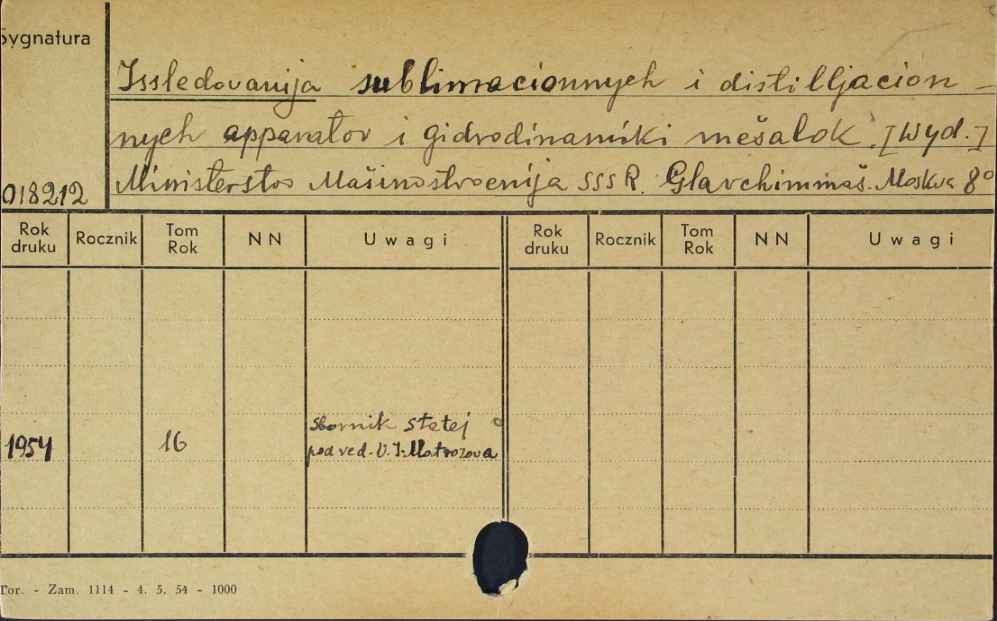 Sygnatura
Issledovanija sublimacionnych i distilljacion-
nych apparatov i gidrodinamiki mešalok. [Wyd.]
018212 Ministerstvo Mašinostroenija SSSR. Glavchimmaš. Moskva 8°
Rok druku Rocznik Tom Rok NN Uwagi Rok druku Rocznik Tom Rok NN Uwagi
sbornik statej
1954 16 pod red. V. I. Matrozova
Tor. - Zam. 1114 - 4. 5. 54 - 1000